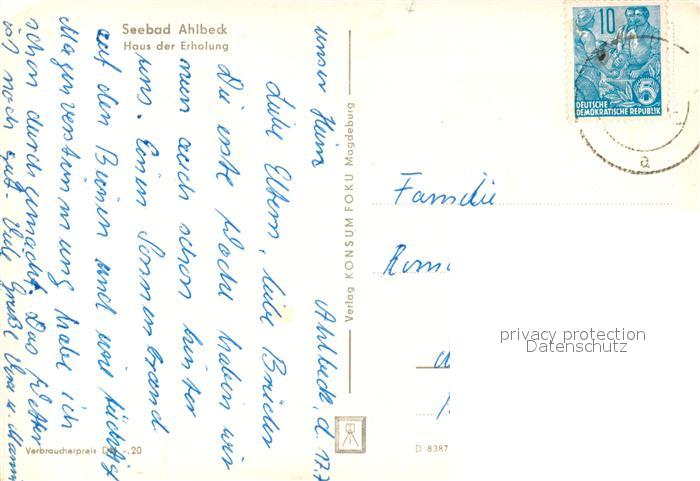 Seebad Ahlbeck
Haus der Erholung
unser Heim
Ahlbeck, d. 17.7
Liebe Eltern, liebe Brüder
Die erste Woche haben wir
nun auch schon hinter
uns. Einen Sonnenbrand
auf den Beinen und eine tüchtige
Magenverstimmung habe ich
schon durchgemacht. Das Wetter
ist noch gut. Viele Grüße u.
Verbraucherpreis DM -.20
Verlag KONSUM FOKU Magdeburg
D 8387
10
5
DEUTSCHE
DEMOKRATISCHE REPUBLIK
a
Familie
privacy protection
Datenschutz